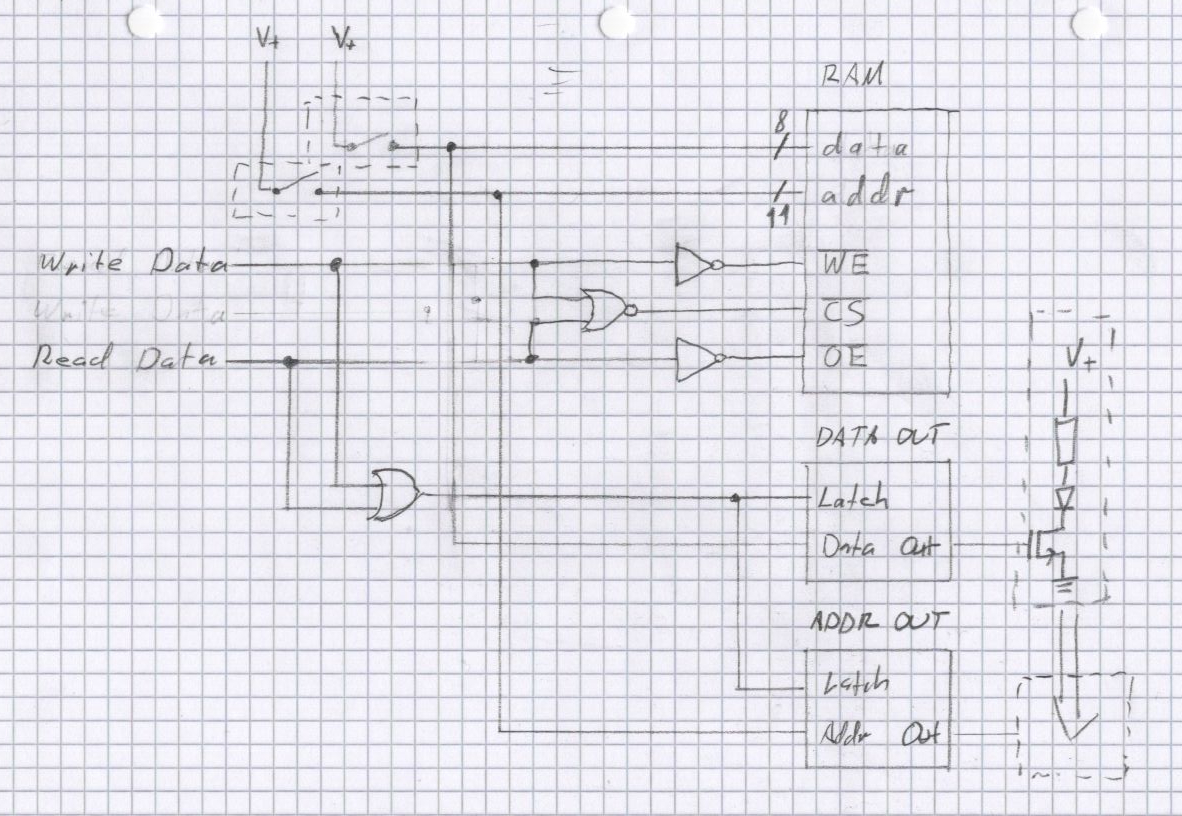 V+ V+
RAM
8
data
addr
11
Write Data
WE
Write Data
CS
Read Data
OE
V+
DATA OUT
Latch
Data Out
ADDR OUT
Latch
Addr Out